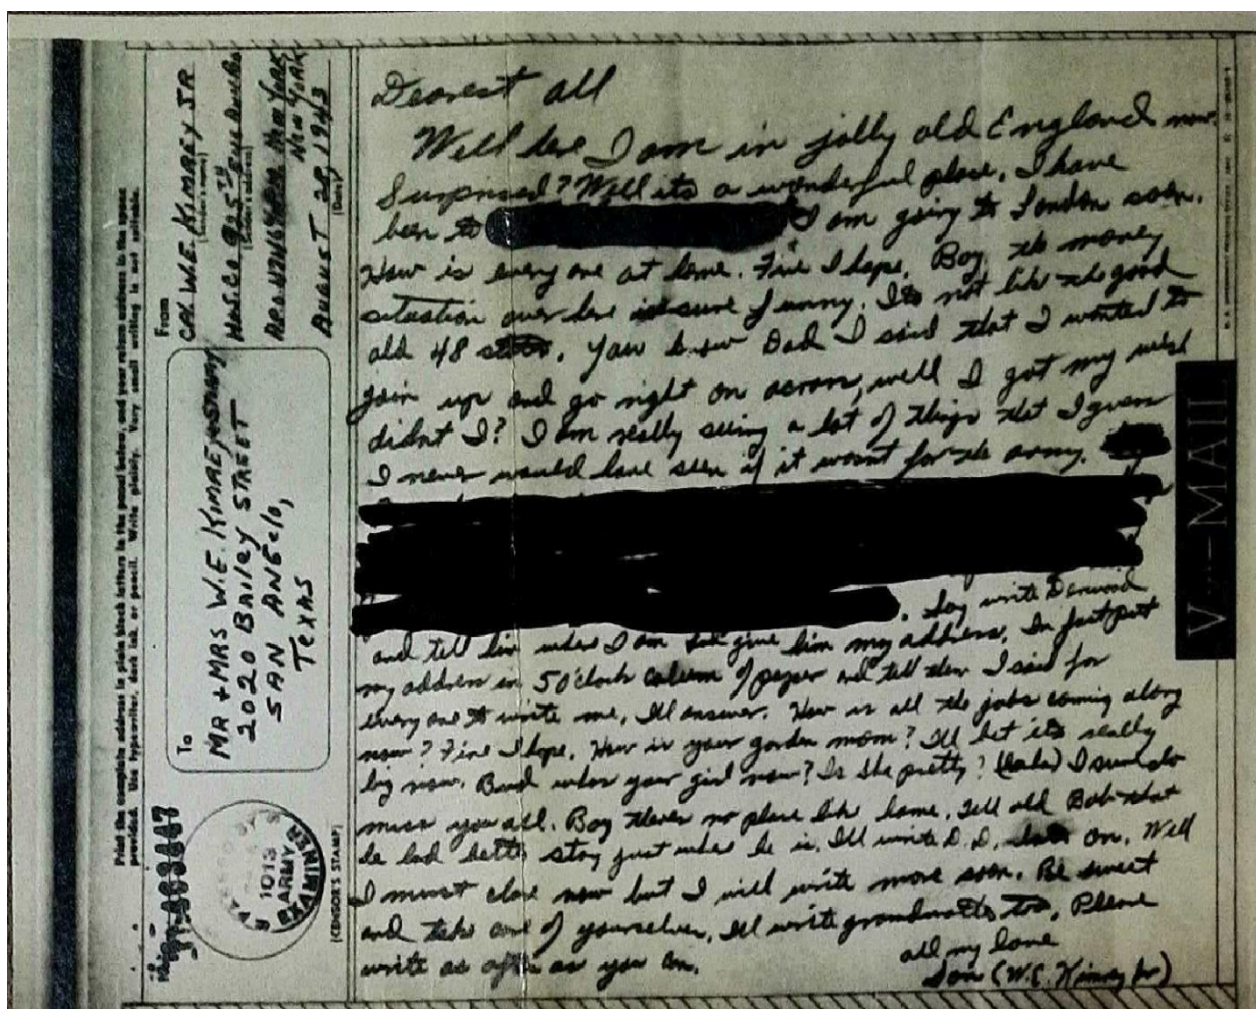 Print the complete address in plain block letters in the panel below, and your return address in the space
provided. Use typewriter, dark ink, or pencil. Write plainly. Very small writing is not suitable.
To
MR + MRS W.E. KIMREY
2020 BAILEY STREET
SAN ANGELO,
TEXAS
From
W.E. KIMREY JR
(Sender's name)
HQ. S. CO 925TH
(Sender's address)
NEW YORK
NEW YORK
AUGUST 28, 1943
(Date)
PASSED BY
1013
ARMY
EXAMINER
(CENSOR'S STAMP)
V···—MAIL
Dearest all
Well here I am in jolly old England now.
Surprised? Well its a wonderful place. I have
been to I am going to London soon.
How is every one at home. Fine I hope. Boy the money
situation over here is sure funny. Its not like the good
old 48 states. You know Dad I said that I wanted to
join up and go right on across, well I got my wish
didnt I? I am really seeing a lot of things that I guess
I never would have seen if it wasnt for the army.
. Say write Derwood
and tell him where I am and give him my address. In fact put
my address in 5 O'clock column of paper and tell them I said for
every one to write me, Ill answer. How is all the jobs coming along
now? Fine I hope. How is your garden mom? Ill bet its really
big now. Bud whos your girl now? Is she pretty? (haha) I sure do
miss you all. Boy theres no place like home. Tell old Bob that
he had better stay just where he is. Ill write D.D. later on. Well
I must close now but I will write more soon. Be sweet
and take care of yourselves. Ill write grandmother too. Please
write as often as you can.
all my love
Son (W.E. Kimrey Jr)